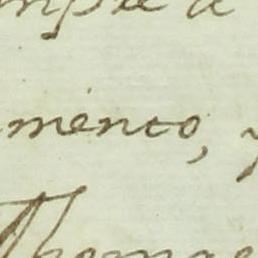 mple a
mento, y
Thomas